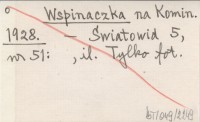 Wspinaczka na Komin.
1928. – Światowid 5,
nr 51: , il. Tylko fot.